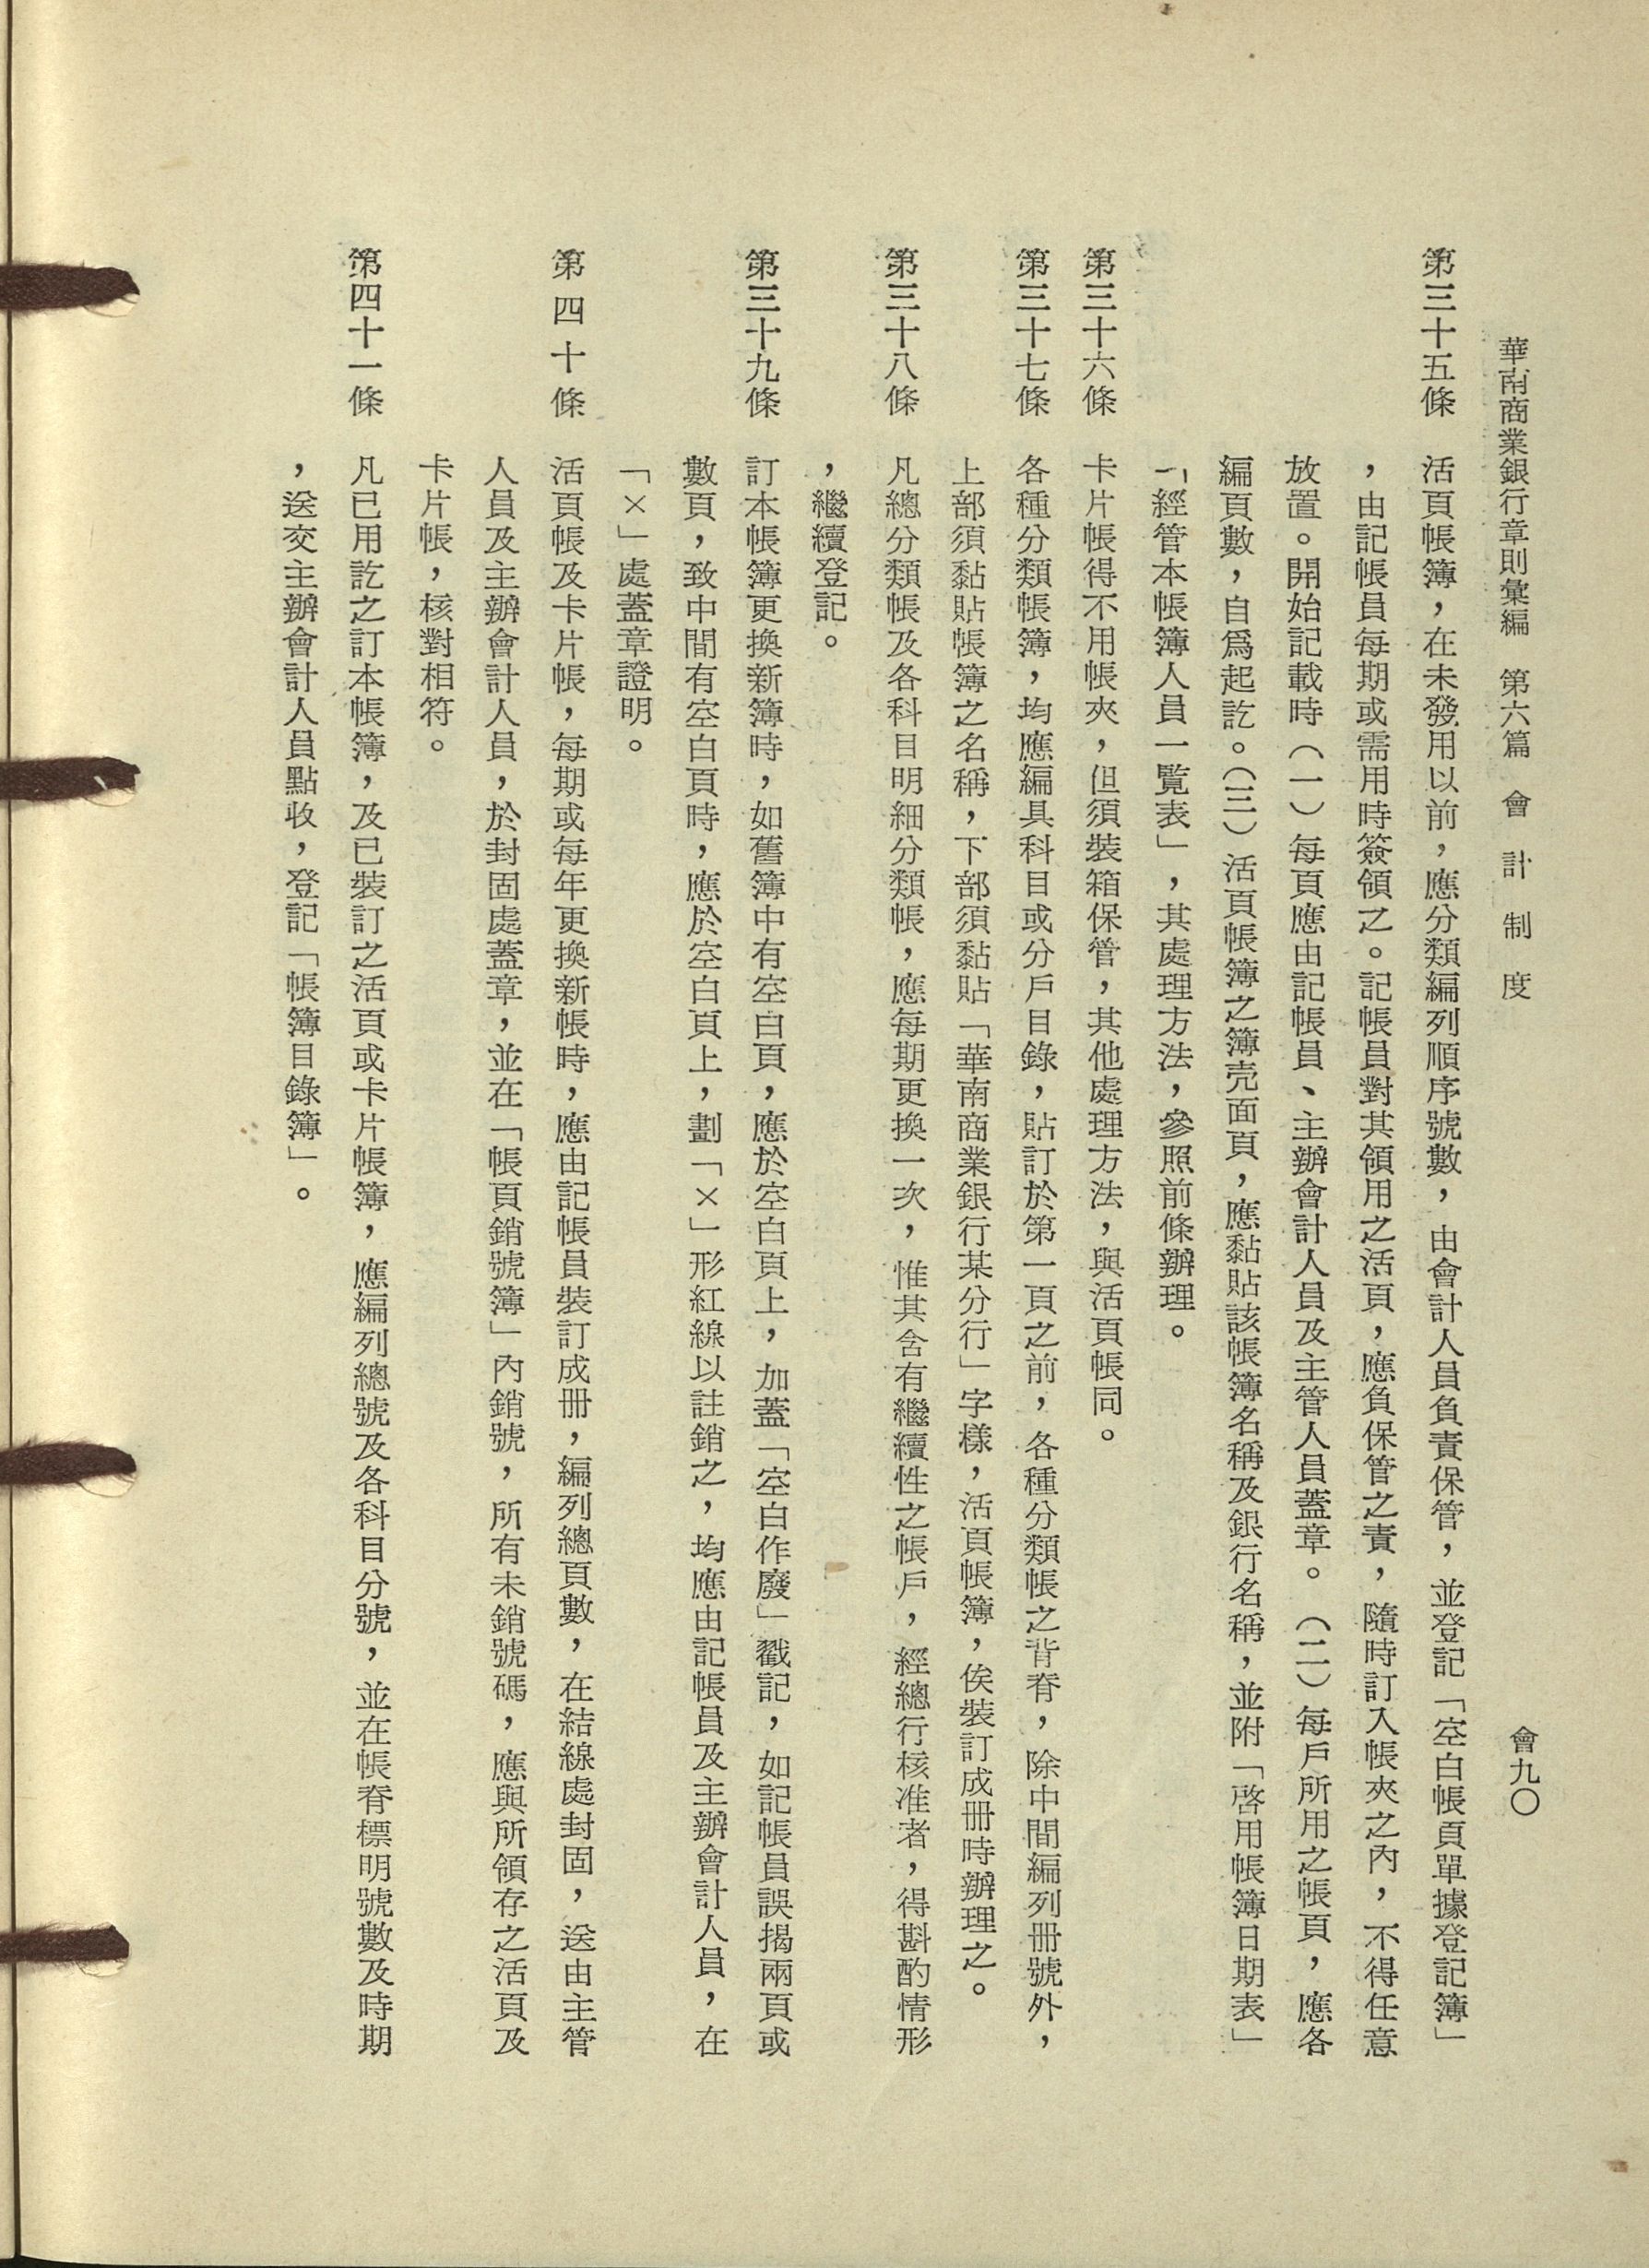 華南商業銀行章則彙編　第六篇　會計制度　會九〇
第三十五條　活頁帳簿，在未發用以前，應分類編列順序號數，由會計人員負責保管，並登記「空白帳頁單據登記簿」
，由記帳員每期或需用時簽領之。記帳員對其領用之活頁，應負保管之責，隨時訂入帳夾之內，不得任意
放置。開始記載時（一）每頁應由記帳員、主辦會計人員及主管人員蓋章。（二）每戶所用之帳頁，應各
編頁數，自爲起訖。（三）活頁帳簿之簿壳面頁，應黏貼該帳簿名稱及銀行名稱，並附「啓用帳簿日期表」
「經管本帳簿人員一覽表」，其處理方法，參照前條辦理。
第三十六條　卡片帳得不用帳夾，但須裝箱保管，其他處理方法，與活頁帳同。
第三十七條　各種分類帳簿，均應編具科目或分戶目錄，貼訂於第一頁之前，各種分類帳之背脊，除中間編列冊號外，
上部須黏貼帳簿之名稱，下部須黏貼「華南商業銀行某分行」字樣，活頁帳簿，俟裝訂成冊時辦理之。
第三十八條　凡總分類帳及各科目明細分類帳，應每期更換一次，惟其含有繼續性之帳戶，經總行核准者，得斟酌情形
，繼續登記。
第三十九條　訂本帳簿更換新簿時，如舊簿中有空白頁，應於空白頁上，加蓋「空白作廢」戳記，如記帳員誤揭兩頁或
數頁，致中間有空白頁時，應於空白頁上，劃「×」形紅線以註銷之，均應由記帳員及主辦會計人員，在
「×」處蓋章證明。
第四十條　活頁帳及卡片帳，每期或每年更換新帳時，應由記帳員裝訂成冊，編列總頁數，在結線處封固，送由主管
人員及主辦會計人員，於封固處蓋章，並在「帳頁銷號簿」內銷號，所有未銷號碼，應與所領存之活頁及
卡片帳，核對相符。
第四十一條　凡已用訖之訂本帳簿，及已裝訂之活頁或卡片帳簿，應編列總號及各科目分號，並在帳脊標明號數及時期
，送交主辦會計人員點收，登記「帳簿目錄簿」。